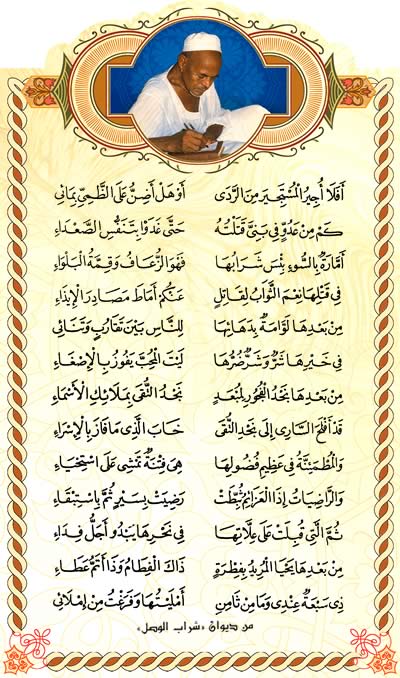 أَفَلَا أُجِيرُ الْمُسْتَجِيرَ مِنَ الرَّدَى أَوْ هَلْ أَضِنُّ عَلَى الظَّمِيِّ بِمَائِي
كَمْ مِنْ عَدُوٍّ فِي بَنِيَّ قَتَلْتُهُ حَتَّى غَدَوْا بِتَنَفُّسِ الصَّعْدَاءِ
أَمَّارَةٌ بِالسُّوءِ بِئْسَ شَرَابُهَا فَهُوَ الزُّعَافُ وَقِمَّةُ الْبَلْوَاءِ
فِي قَتْلِهَا نِعْمَ الثَّوَابُ لِقَاتِلٍ عَنْكُمْ أَمَاطَ مَصَادِرَ الْإِيذَاءِ
مِنْ بَعْدِهَا لَوَّامَةٌ بِدَهَائِهَا لِلنَّاسِ بَيْنَ تَقَارُبٍ وَتَنَائِي
فِي خَيْرِهَا شَرٌّ وَشَرٌّ شَرُّهَا لَيْتَ الْمُحِبَّ يَفُوزُ بِالْإِصْغَاءِ
مِنْ بَعْدِهَا نَجْدُ الْفُجُورِ لِمُبْعَدٍ نَجْدُ التُّقَى بِمَلَائِكِ الْأَسْمَاءِ
قَدْ أَفْلَحَ السَّارِي إِلَى نَجْدِ التُّقَى خَابَ الَّذِي مَا فَازَ بِالْإِسْرَاءِ
وَالْمُطْمَئِنَّةُ فِي عَظِيمِ فُضُولِهَا هِيَ فِتْنَةٌ تَمْشِي عَلَى اسْتِحْيَاءِ
وَالرَّاضِيَاتُ إِذَا الْعَزَائِمُ ثُبِّطَتْ رَضِيَتْ بِسَيْرٍ ثُمَّ بِاسْتِبْقَاءِ
ثُمَّ الَّتِي قُبِلَتْ عَلَى عِلَّاتِهَا فِي نَحْرِهَا يَبْدُو أَجَلُّ فِدَاءِ
مِنْ بَعْدِهَا يَحْيَا الْمُرِيدُ بِفِطْرَةٍ ذَاكَ الْفِطَامُ وَذَا أَتَمُّ عَطَاءِ
ذِي سَبْعَةٌ عِنْدِي وَمَا مِنْ ثَامِنٍ أَمْلَيْتُهَا وَفَرَغْتُ مِنْ إِمْلَائِي
من ديوان «شراب الوصل»